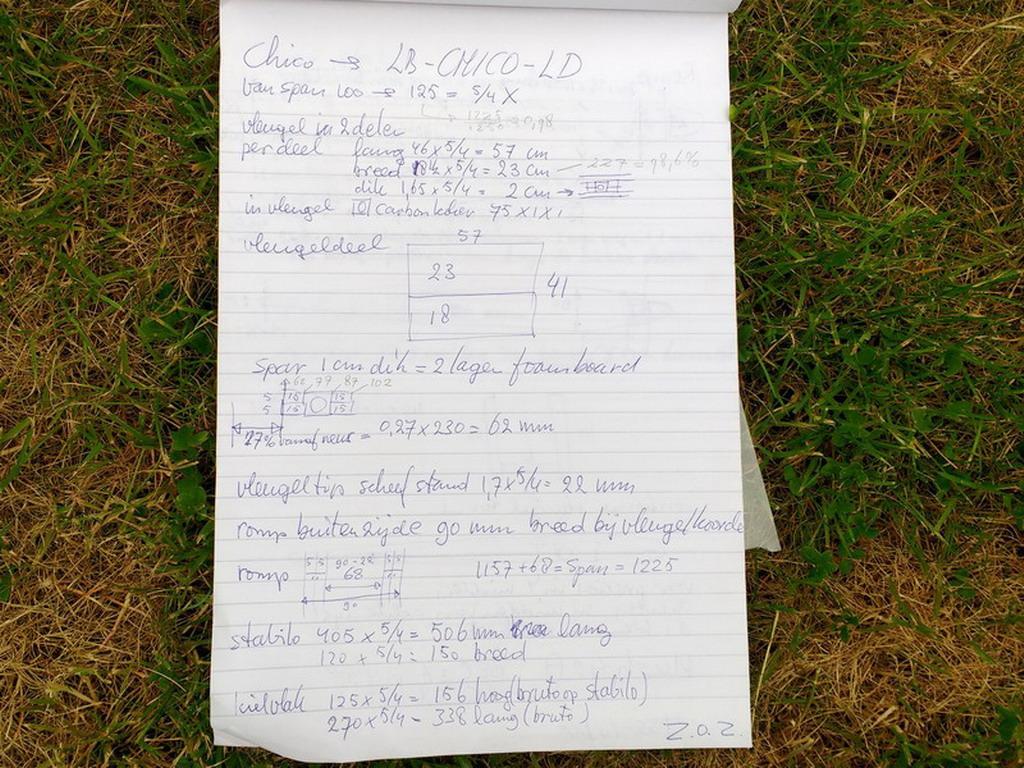 Chico → LB-CHICO-LD
van span 100 → 125 = 5/4 X
1225 / 1250 = 0,98
vleugel in 2 delen
per deel lang 46 x 5/4 = 57 cm
breed 18½ x 5/4 = 23 cm 227 = 98,6%
dik 1,65 x 5/4 = 2 cm →
in vleugel carbon koker 75 x 1 x 1
vleugeldeel
57
23
41
18
Spar 1 cm dik = 2 lagen foamboard
62 77 87 102
5 15 15
5 15 15
27% vanaf neus = 0,27 x 230 = 62 mm
vleugeltip scheef stand 1,7 x 5/4 = 22 mm
romp buitenzijde 90 mm breed bij vleugelkoorde
romp
5 5 90-22 5 5
68
90
1157 + 68 = Span = 1225
stabilo 405 x 5/4 = 506 mm lang
120 x 5/4 = 150 breed
kielvlak 125 x 5/4 = 156 hoog (bruto op stabilo)
270 x 5/4 - 338 lang (bruto)
Z.O.Z.